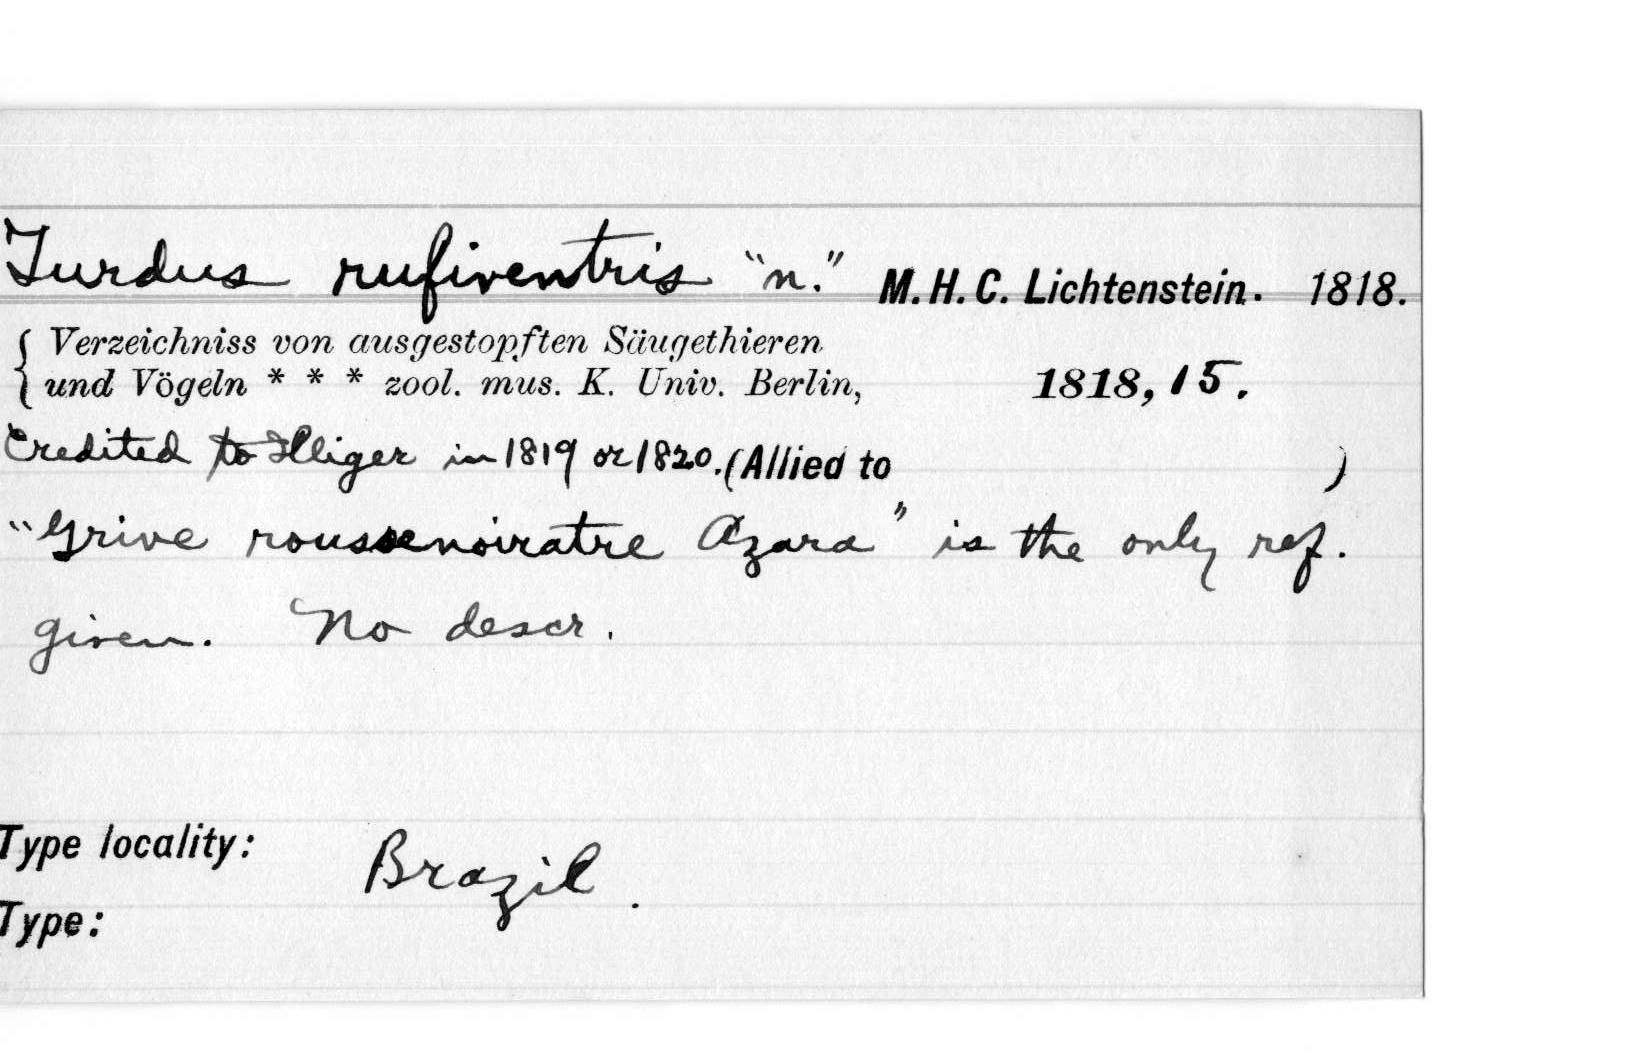 Turdus rufiventris "n." M. H. C. Lichtenstein. 1818.
{ Verzeichniss von ausgestopften Säugethieren
und Vögeln * * * zool. mus. K. Univ. Berlin, 1818, 15.
Credited to Illiger in 1819 or 1820. (Allied to )
"Grive roussenoiratre Azara" is the only ref.
given. No descr.
Type locality: Brazil.
Type: